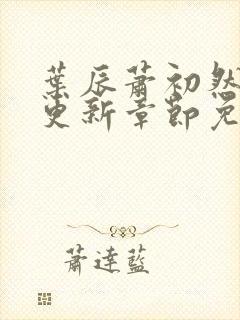 葉辰蕭初然
更新章節免
蕭達藍